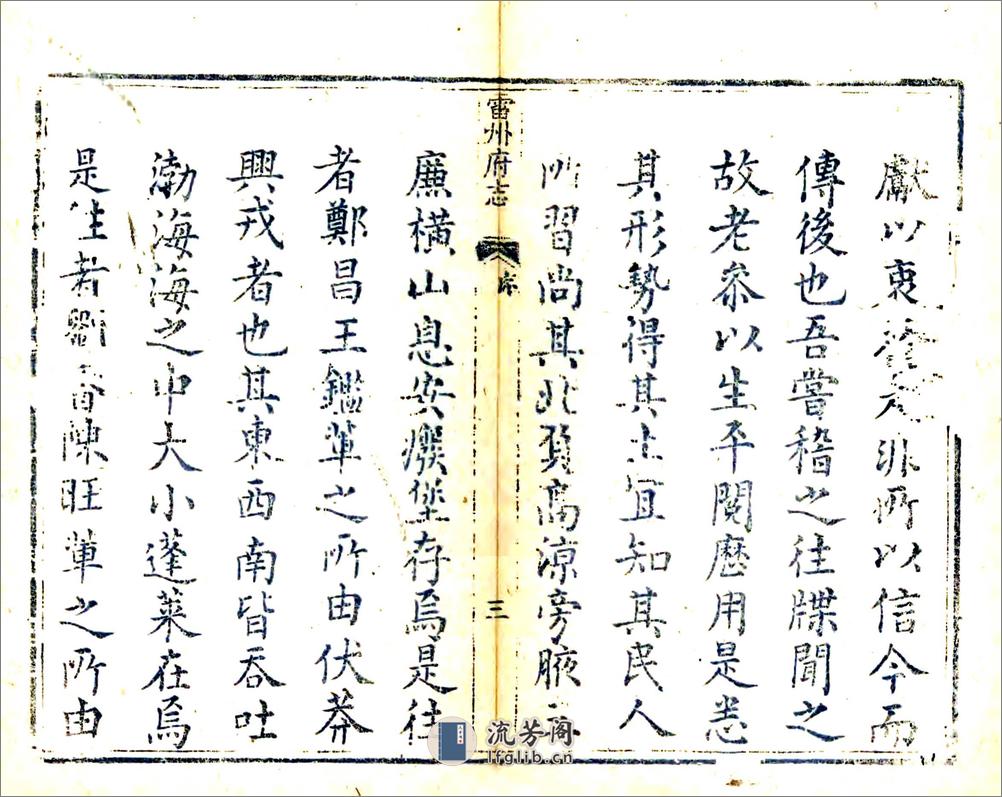 獻以衷 非所以信今而
傳後也吾嘗稽之往牒聞之
故老叅以生平閱歷用是悉
其形勢得其土宜知其民人
所習尚其北負高涼旁腋
雷州府志 序 三
廉橫山息安癈堡存焉是往
者鄭昌王鑑輩之所由伏莽
興戎者也其東西南皆吞吐
渤海海之中大小蓬萊在焉
是往者劉 陳旺輩之所由
流芳阁
lfglib.cn